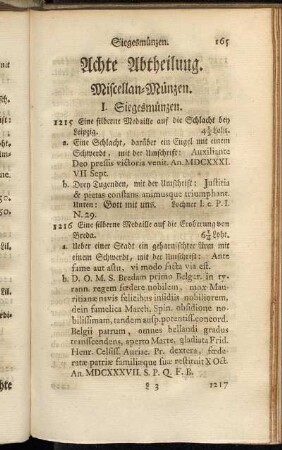 Siegesmünzen. 165
Achte Abtheilung.
Miscellan-Münzen.
I. Siegesmünzen.
1215 Eine silberne Medaille auf die Schlacht bey
Leipzig. 4½ Loth.
a. Eine Schlacht, darüber ein Engel mit einem
Schwerdt, mit der Umschrift: Auxiliante
Deo pressis victoria venit. An. MDCXXXI.
VII Sept.
b. Drey Tugenden, mit der Umschrift: Justitia
& pietas constans animusque triumphant.
Unten: Gott mit uns. Lochner I. c. P. I.
N. 29.
1216 Eine silberne Medaille auf die Eroberung von
Breda. Loht.
a. Ueber einer Stadt ein geharnischter Arm mit
einem Schwerdt, mit der Umschrift: Ante
fame aut astu, vi modo facta via est.
b. D. O. M. S. Bredam primo Belgic. in ty-
rann. regem fœdere nobilem, mox Mau-
ritianæ navis felicibus insidiis nobiliorem,
dein famelica March. Spin. obsidione no-
bilissimam, tandem ausp. potentiss. concord.
Belgii patrum, omnes bellandi gradus
transcendens, aperto Marte, gladiata Frid.
Henr. Celsiss. Auriac. Pr. dextera, fœde-
ratæ patriæ familiæque suæ restituit X Oct.
An. MDCXXXVII. S. P. Q. F. B.
l 3 1217